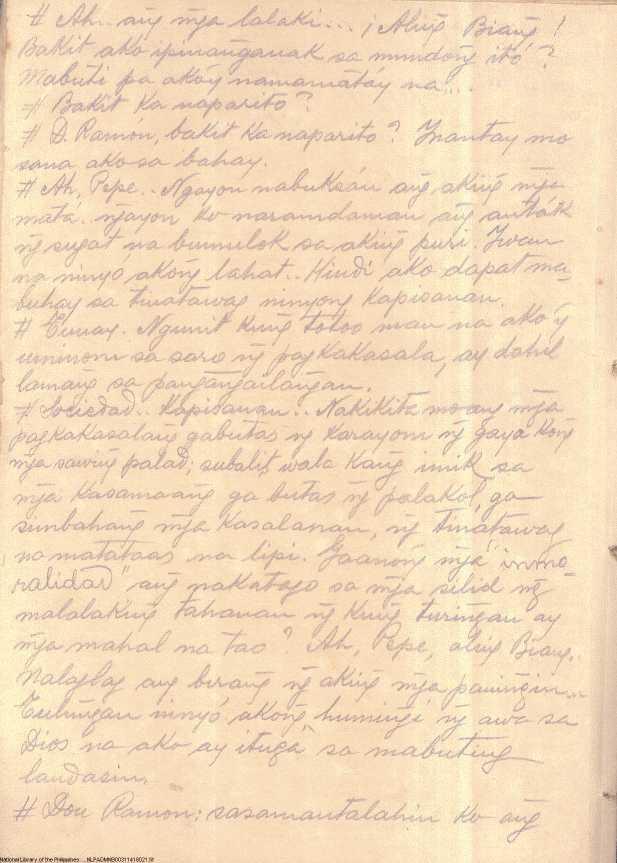 # Ah.. ang mga lalaki... ¡Aling Biang!
Bakit ako ipinanganak sa mundong ito?
Mabuti pa ako'y namamatáy na...
# Bakit ka naparito?
# D. Ramón, bakit ka naparito? Inantay mo
sana ako sa bahay.
# Ah, Pepe.. Ngayon nabuksán ang aking mga
matá. ngayon ko naramdaman ang anták
ng sugat na bumulok sa aking puri. Iwan
na ninyó akong lahat.. Hindi ako dapat ma-
buhay sa tinatawag ninyong kapisanan.
# Tunay. Ngunit kung totoo man na ako'y
uminom sa saro ng pagkakasala, ay dahil
lamang sa pangangailangan.
# Sociedad.. Kapisanan.. Nakikita mo ang mga
pagkakasalang gabutas ng karayom ng gaya kong
mga sawing palad; subalit wala kang imik sa
mga kasamaang ga butas ng palakol, ga
simbahang mga kasalanan, ng tinatawag
na matataas na lipi. Gaanong mga "immo-
ralidad" ang nakatago sa mga silid ng
malalaking tahanan ng kung turingan ay
mga mahal na tao? Ah, Pepe, aling Biang..
Nalaglag ang birang ng aking mga paningin...
Tulungan ninyó akong humingi ng awa sa
Dios na ako ay ituga sa mabuting
landasin.
# Don Ramon: sasamantalahin ko ang
National Library of the Philippines